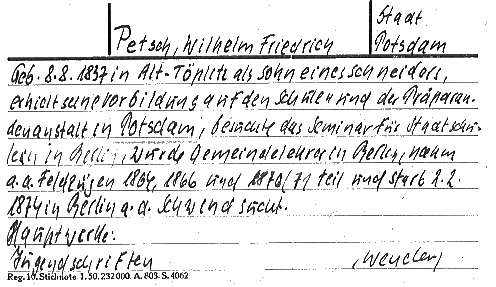 Stadt
Petsch, Wilhelm Friedrich Potsdam
Geb. 8.8.1837 in Alt-Töplitz als Sohn eines Schneiders,
erhielt seine Vorbildung auf den Schulen und der Präparan-
denanstalt in Potsdam, besuchte das Seminar für Stadtschu-
len in Berlin, wurde Gemeindelehrer in Berlin, nahm
a.d. Feldzügen 1864, 1866 und 1870/71 teil und starb 2.2.
1874 in Berlin a.d. Schwindsucht.
Hauptwerke:
Jugendschriften
Reg. 10. Stichnote 1. 50. 232000. A. 803. S. 4062